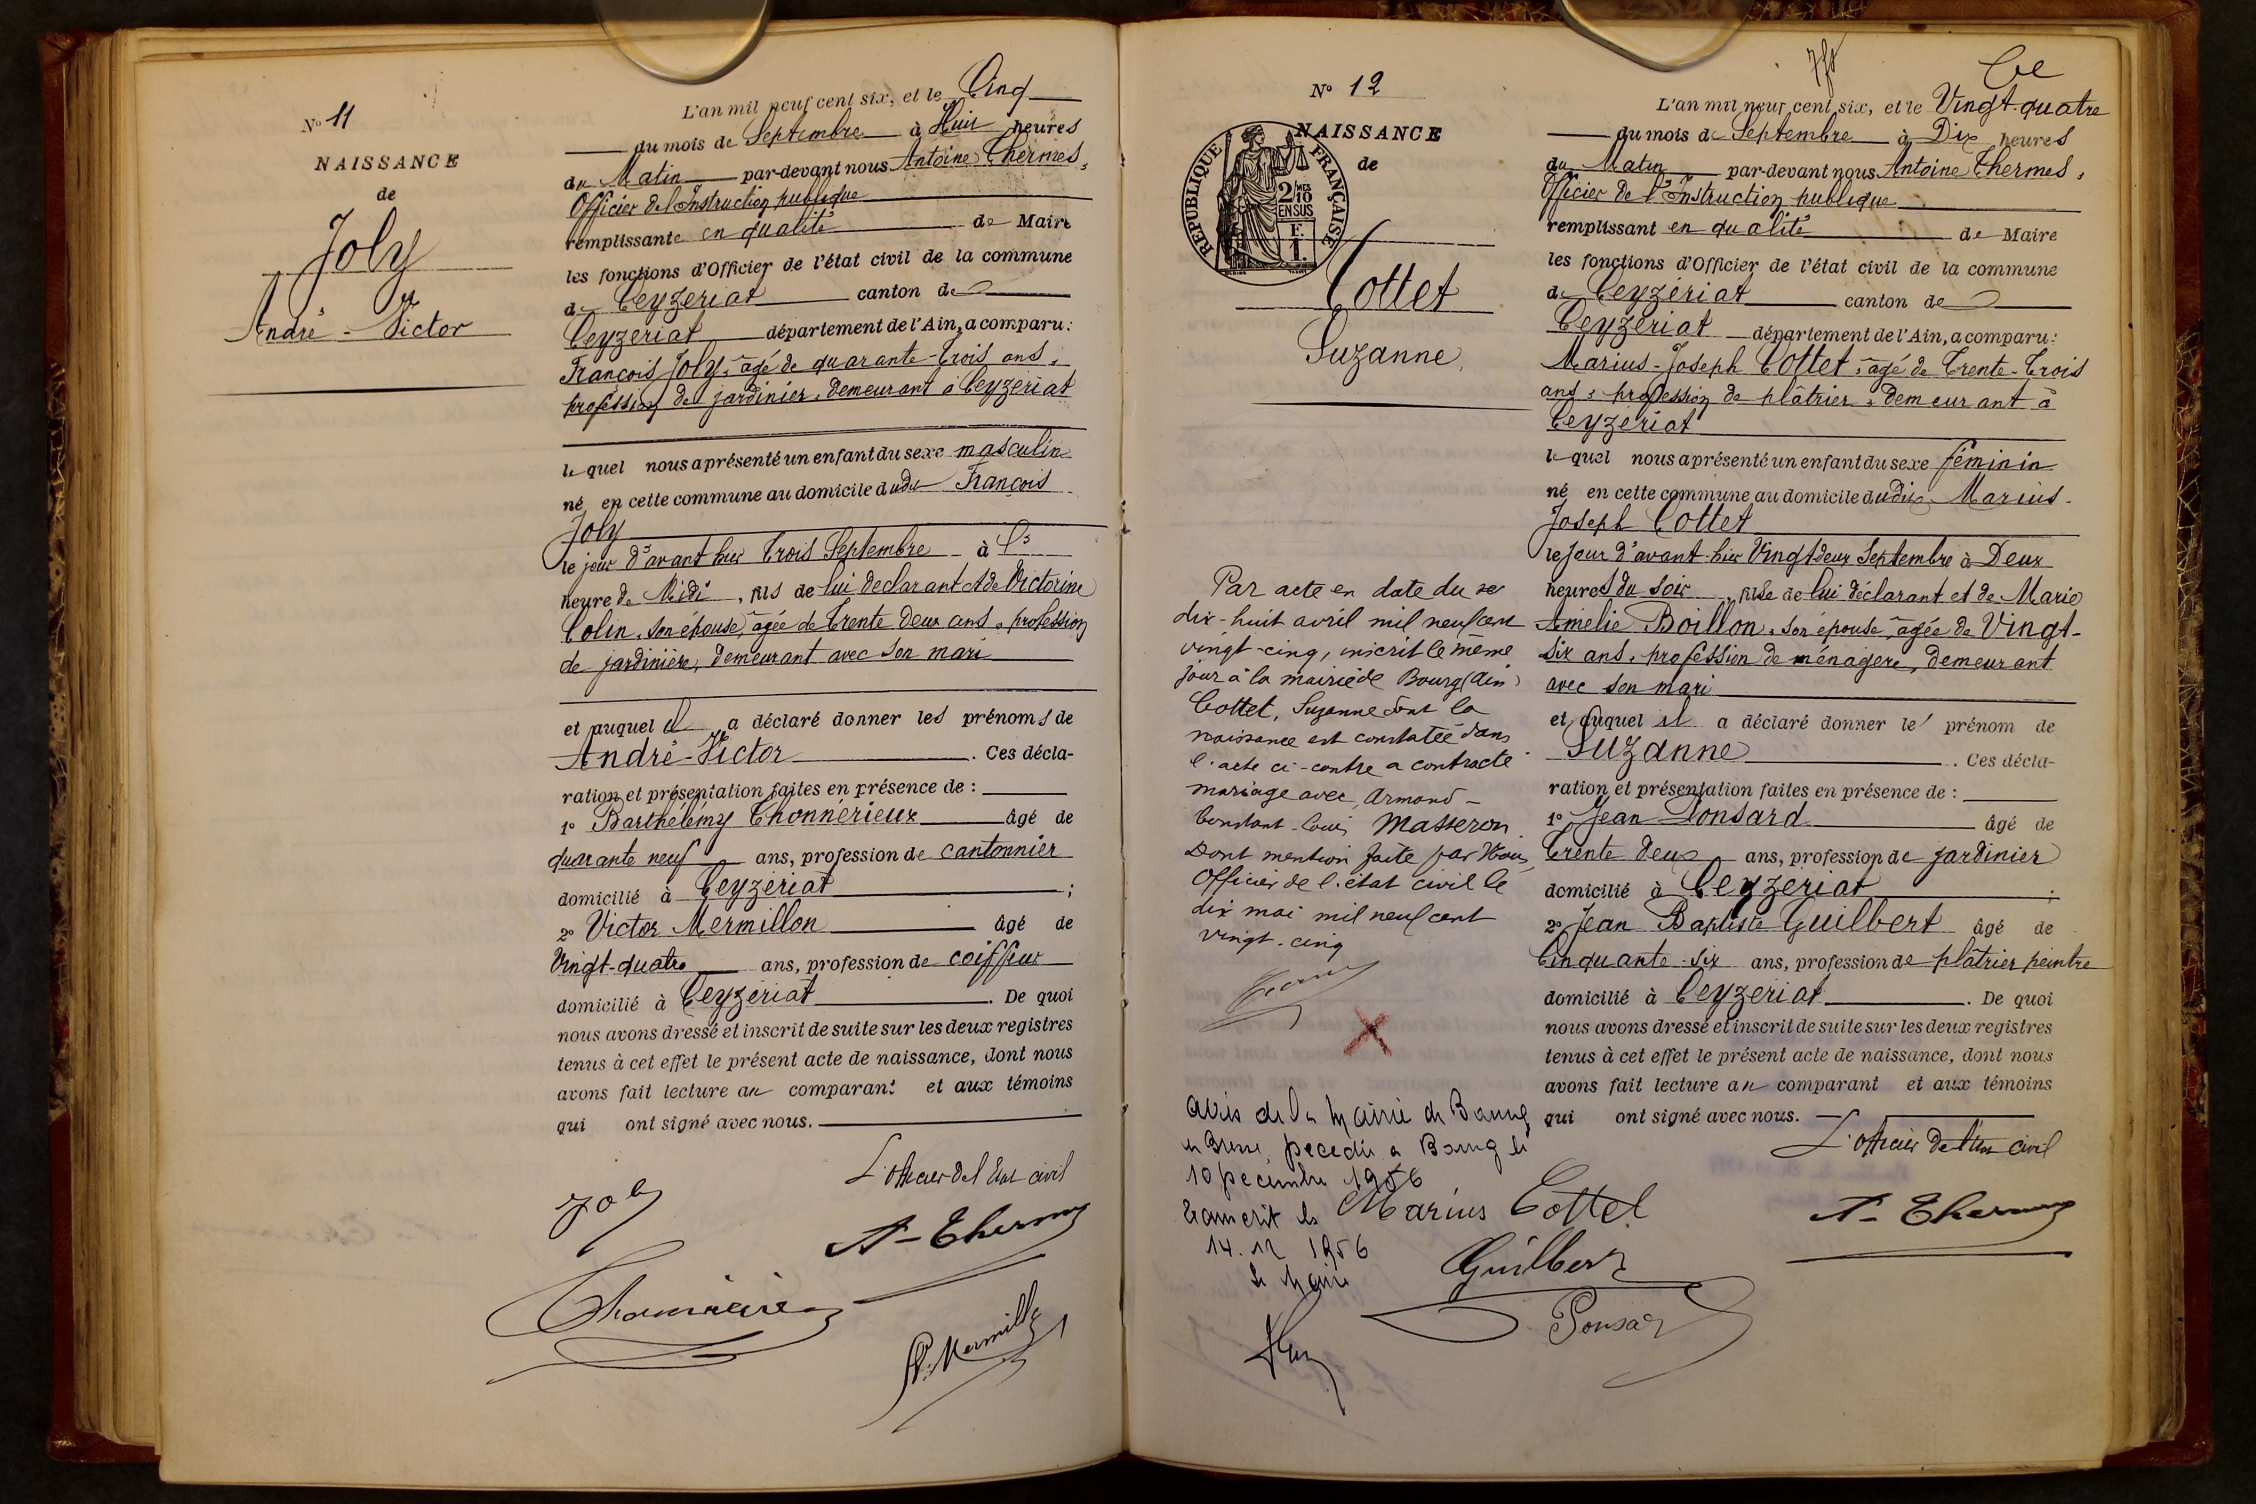 N° 11
NAISSANCE
de
Joly
André-Victor
L'an mil neuf cent six, et le Cinq
du mois de Septembre à Huit heures
du Matin par-devant nous Antoine Thermes,
Officier de l'Instruction publique
remplissante en qualité de Maire
les fonctions d'Officier de l'état civil de la commune
de Ceyzériat canton de
Ceyzériat département de l'Ain, a comparu:
François Joly, âgé de quarante-trois ans,
profession de jardinier, demeurant à Ceyzériat
lequel nous a présenté un enfant du sexe masculin
né en cette commune au domicile dudit François
Joly
le jour d'avant hier trois Septembre à
heure de Midi, fils de lui déclarant et de Victorine
Colin, son épouse, âgée de trente deux ans, profession
de jardinière, demeurant avec son mari
et auquel il a déclaré donner les prénoms de
André-Victor. Ces décla-
ration et présentation faites en présence de :
1° Barthélémy Thonnérieux âgé de
quarante neuf ans, profession de cantonnier
domicilié à Ceyzériat ;
2° Victor Mermillon âgé de
Vingt-quatre ans, profession de coiffeur
domicilié à Ceyzériat. De quoi
nous avons dressé et inscrit de suite sur les deux registres
tenus à cet effet le présent acte de naissance, dont nous
avons fait lecture au comparant et aux témoins
qui ont signé avec nous.
L'officier de l'Etat civil
Joly
A. Thermes
Thonnérieux
V. Mermillon
N° 12
NAISSANCE
de
RÉPUBLIQUE FRANÇAISE
2/10 MES
EN SUS
F.
1.
Cottet
Suzanne
Par acte en date du
dix-huit avril mil neuf cent
vingt-cinq, inscrit le même
jour à la mairie de Bourg (Ain)
Cottet, Suzanne dont la
naissance est constatée dans
l'acte ci-contre a contracté
mariage avec Armand-
Constant-Louis Masseron.
Dont mention faite par Nous,
Officier de l'état civil le
dix mai mil neuf cent
vingt-cinq
avis de la Mairie de Bourg
en Bresse, décédée à Bourg le
10 décembre 1956
transcrit le
14.12 1956
le Maire
Ce
L'an mil neuf cent six, et le Vingt-quatre
du mois de Septembre à Dix heures
du Matin par-devant nous Antoine Thermes,
Officier de l'Instruction publique
remplissant en qualité de Maire
les fonctions d'Officier de l'état civil de la commune
de Ceyzériat canton de
Ceyzériat département de l'Ain, a comparu:
Marius-Joseph Cottet, âgé de trente-trois
ans, profession de plâtrier, demeurant à
Ceyzériat
lequel nous a présenté un enfant du sexe féminin
né en cette commune au domicile dudit Marius-
Joseph Cottet
le jour d'avant-hier Vingt deux Septembre à Deux
heures du soir, fille de lui déclarant et de Marie
Amélie Boillon, son épouse, âgée de Vingt-
six ans, profession de ménagère, demeurant
avec son mari
et auquel il a déclaré donner le prénom de
Suzanne. Ces décla-
ration et présentation faites en présence de :
1° Jean Ponsard âgé de
trente deux ans, profession de jardinier
domicilié à Ceyzériat ;
2° Jean Baptiste Guilbert âgé de
Cinquante-six ans, profession de plâtrier peintre
domicilié à Ceyzériat. De quoi
nous avons dressé et inscrit de suite sur les deux registres
tenus à cet effet le présent acte de naissance, dont nous
avons fait lecture au comparant et aux témoins
qui ont signé avec nous.
L'officier de l'Etat civil
Marius Cottet
A. Thermes
Guilbert
Ponsard